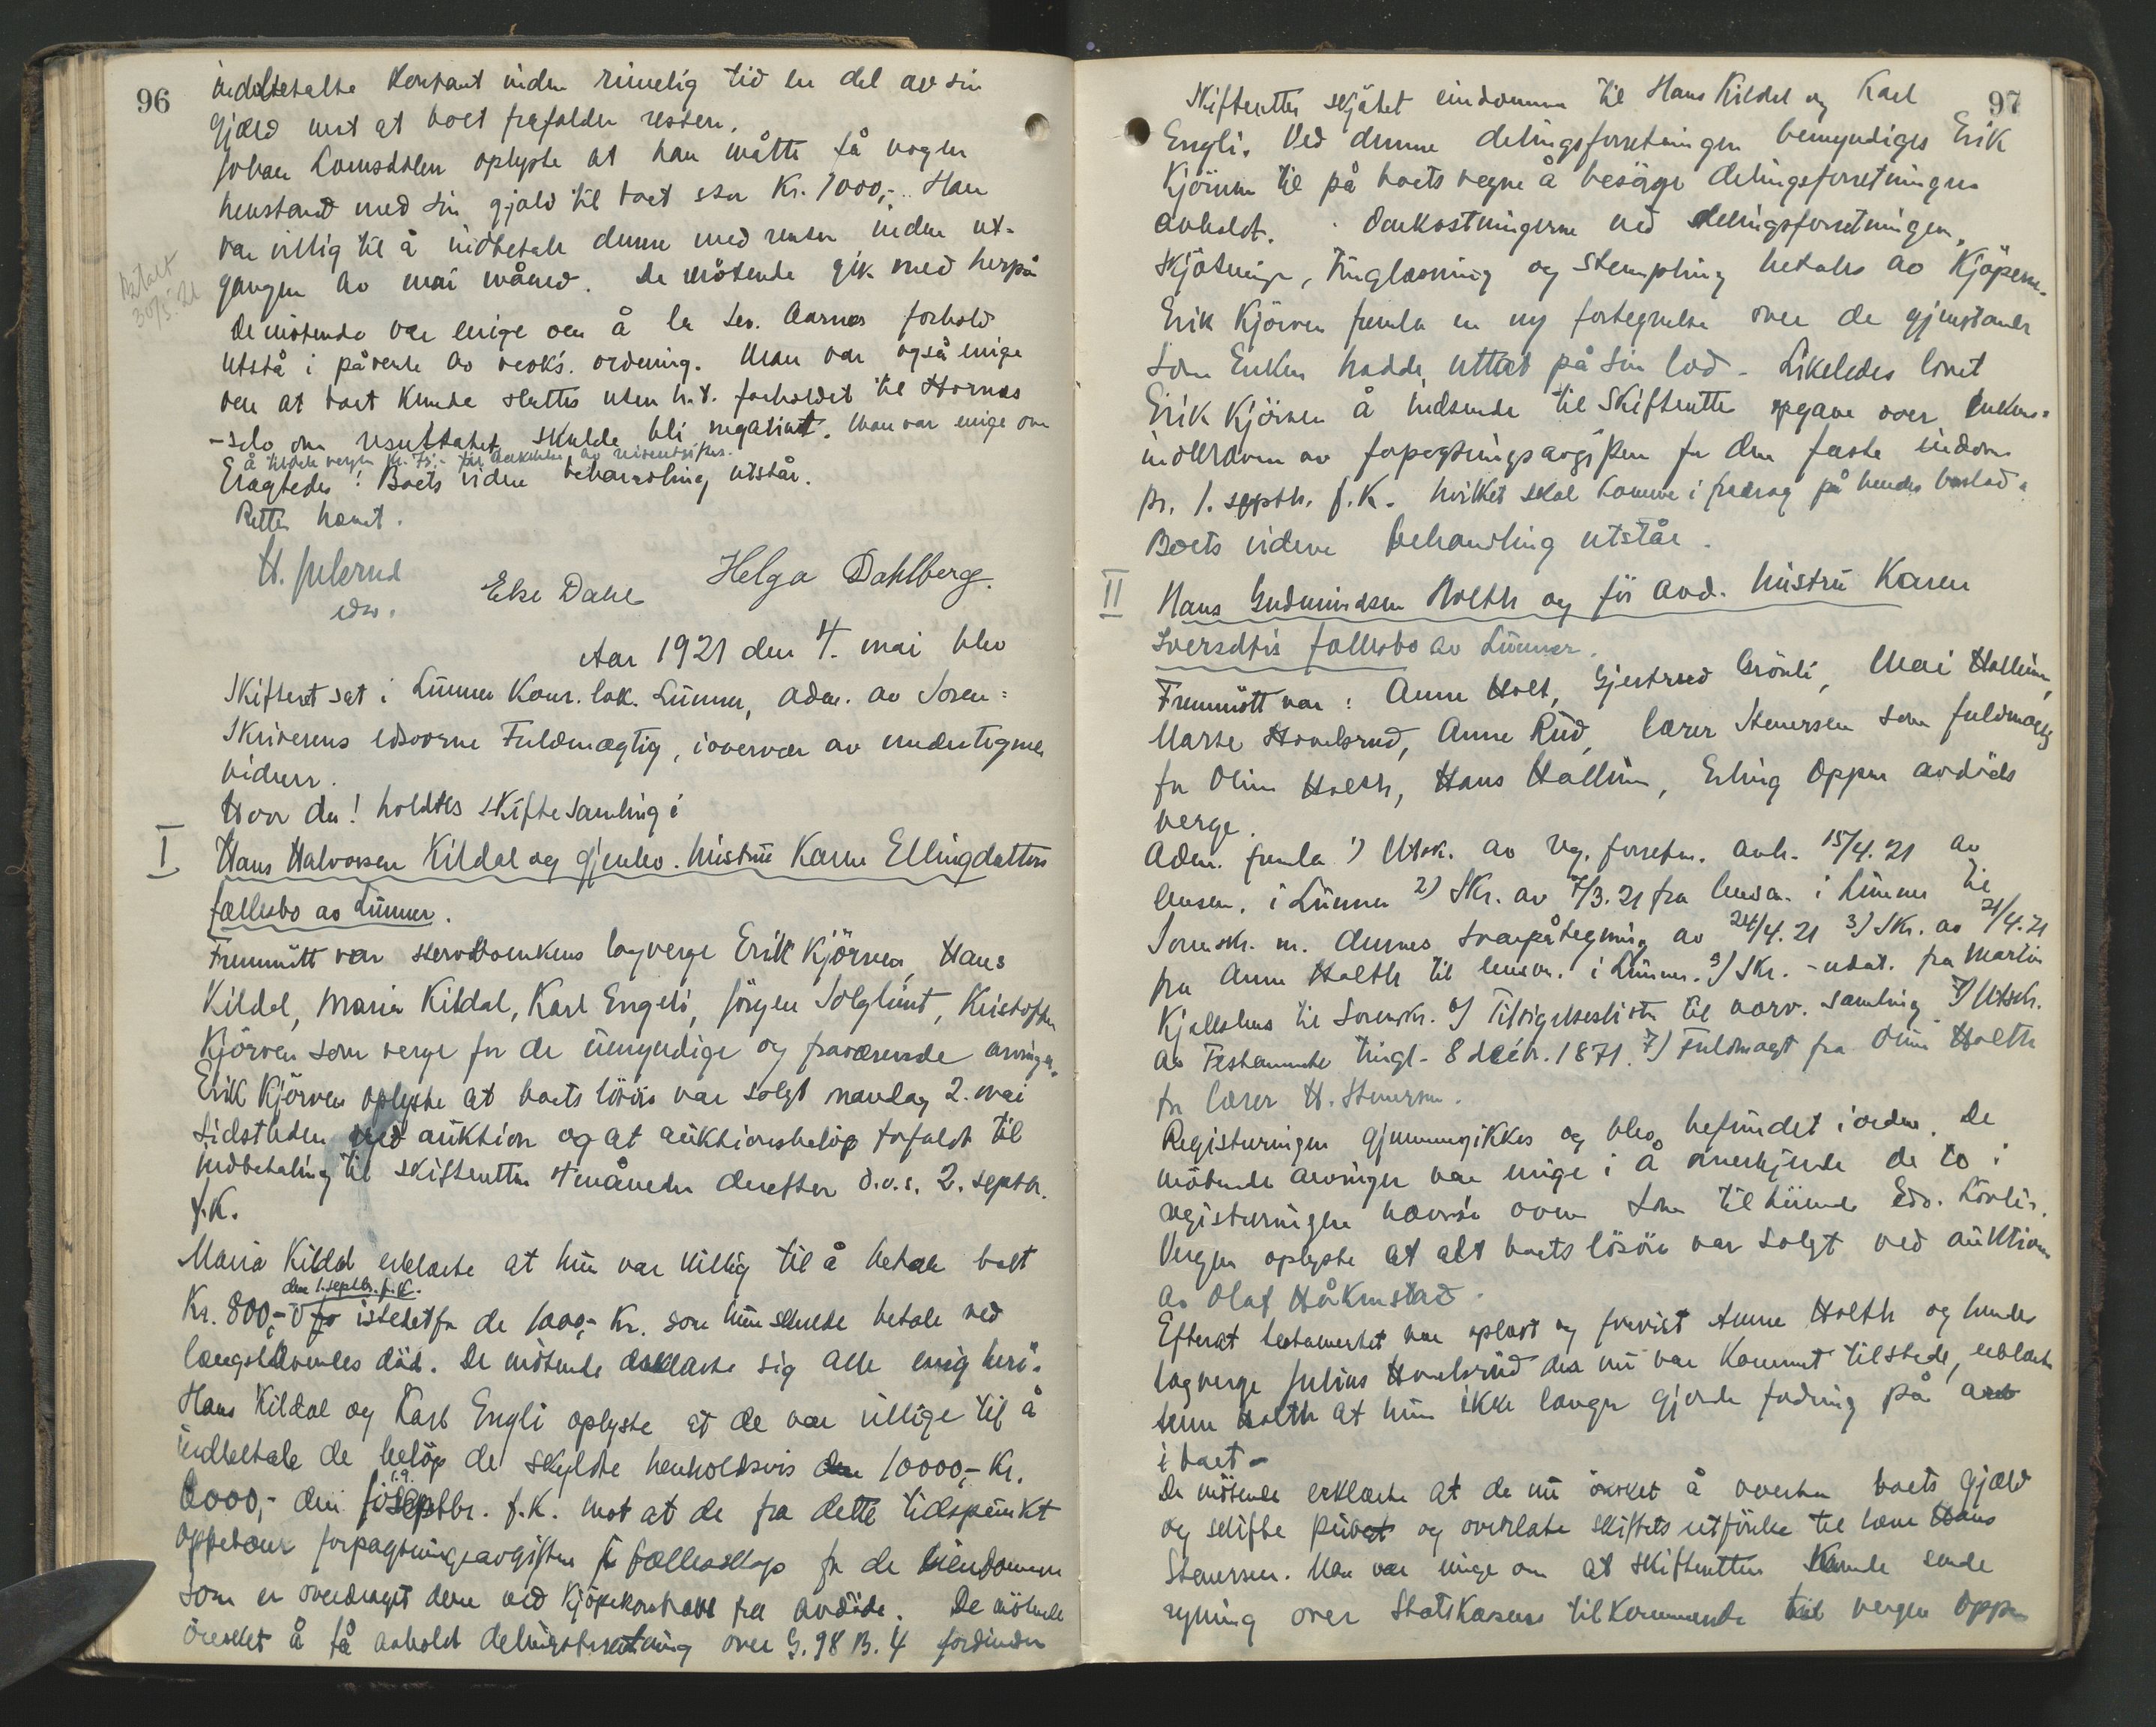 96
indbetalte kontant inden rimelig tid en del av sin
gjæld mot at boet frafalder resten.
Johan Lomsdalen oplyste at han måtte få nogen
henstand med sin gjæld til boet stor Kr. 1000,- Han
var villig til å indbetale denne med renter inden ut-
gangen av mai måned. De mötende gik med herpå
Betalt
30/5.21
De mötende var enige om å la Sev. Aarnæs forhold
utstå i påvente av ordning. Man var også enige
om at boet kunde sluttes uten h.t. forholdet til Hornæs
-selv om resultatet skulde bli negativt. Man var enige om
å tilstå vergen Kr. 75,- for
Eragtedes: Boets videre behandling utstår.
Retten hævet.
H. Julsrud
edsv.
Else Dahl Helga Dahlberg.
Aar 1921 den 4. mai blev
Skifteret sat i Lunner Komr. lok. Lunner, adm. av Soren=
skriverens edsvorne Fuldmægtig, i overvær av undertegnede
vidner.
Hvor da! holdtes skiftesamling i
I
Hans Halvorsen Kildal og gjenlev. hustru Karen Ellingdatters
fællesbo av Lunner.
Fremmött var enkens lagverge Erik Kjörven, Hans
Kildal, Maria Kildal, Karl Engeli, Jörgen Solglimt, Kristoffer
Kjörven som verge for de umyndige og fraværende arvinger.
Erik Kjörven oplyste at boets lösöre var solgt mandag 2. mai
sidstleden ved auktion og at auktionsbelöp forfaldt til
indbetaling til skifteretten 4 måneder derefter d.v.s. 2. septbr.
f.k.
Maria Kildal erklærte at hun var villig til å betale boet
den 1. septbr. f.k.
Kr. 800,- istedetfor de 1000,- Kr. som hun skulde betale ved
længstlevendes död. De mötende erklærte sig alle enig heri.
Hans Kildal og Karl Engli oplyste at de var villige til å
indbetale de belöp de skyldte henholdsvis 10000,- Kr.
1.9.
8000,- den septbr. f.k. mot at de fra dette tidspunkt
oppebærer forpagtningsavgiften i fællesskap for de eiendommer
som er overdraget dem ved kjöpekontrakt fra avdöde. De mötende
önsket å få avholdt delingsforretning over G. 98 B. 4 forinden
97
Skifteretten skjötet eindommen til Hans Kildal og Karl
Engli. Ved denne delingsforretningen bemyndiges Erik
Kjörven til på boets vegne å besörge delingsforretningen
avholdt. Omkostningerne ved delingsforretningen,
skjötning, tinglæsning og stempling betales av Kjöperne.
Erik Kjörven fremla en ny fortegnelse over de gjenstande
som Enken hadde uttat på sin lod. Likeledes lovet
Erik Kjörven å indsende til Skifteretten opgave over Enkens
indkrævn av forpagtningsavgiften for den faste eindom
pr. 1. septbr. f.k. hvilket skal komme i fradrag på hendes boslod.
Boets videre behandling utstår.
II
Hans Gudmundsen Holth og för avd. hustru Karen
Sversdtrs fællesbo av Lunner.
Fremmött var: Anne Holt, Gjertrud Grönli, Mari Hallum,
Marte Hovelsrud, Anne Rud, lærer Stenersen som fuldmægtig
for Oline Holth, Hans Hallum, Erling Oppen avdöds
verge.
Adm. fremla 1) Utsk. av reg. forretn. avh. 15/4.21 av
lensm. i Lunner 2) Skr. av 7/3.21 fra lensm. i Lunner til
Sorenskr. m. dennes svarpåtegning av 24/4.21 3) Skr. av 21/4.21
fra Anne Holth til lensm. i Lunner. Skr. - udat. fra Martin
til Sorenskr. til nærv. samling. Utskr.
av Testamente tingl. 8 decbr. 1871. 7) Fuldmagt fra Oline Holth
for lærer H. Stenersen.
Registreringen gjennemgikkes og blev befundet i orden. De
mötende arvinger var enige i å anerkjende de to i
registreringen nævnte ovne som tilhörende Edv. Lövlie.
Vergen oplyste at alt boets lösöre var solgt ved auktion
av Olaf Håkenstad.
Efterat testamentet var oplæst og forevist Anne Holth og hendes
lagverge Julius Hovelsrud der nu var kommet tilstede, erklærte
Anne Holth at hun ikke længer gjorde fordring på arv
i boet.
De mötende erklærte at de nu önsket å overta boets gjæld
og skifte privat og overlate skiftets utförelse til lærer Hans
Stenersen. Man var enige om at skifteretten kunde sende
regning over Statskassens tilkommende til vergen Oppen